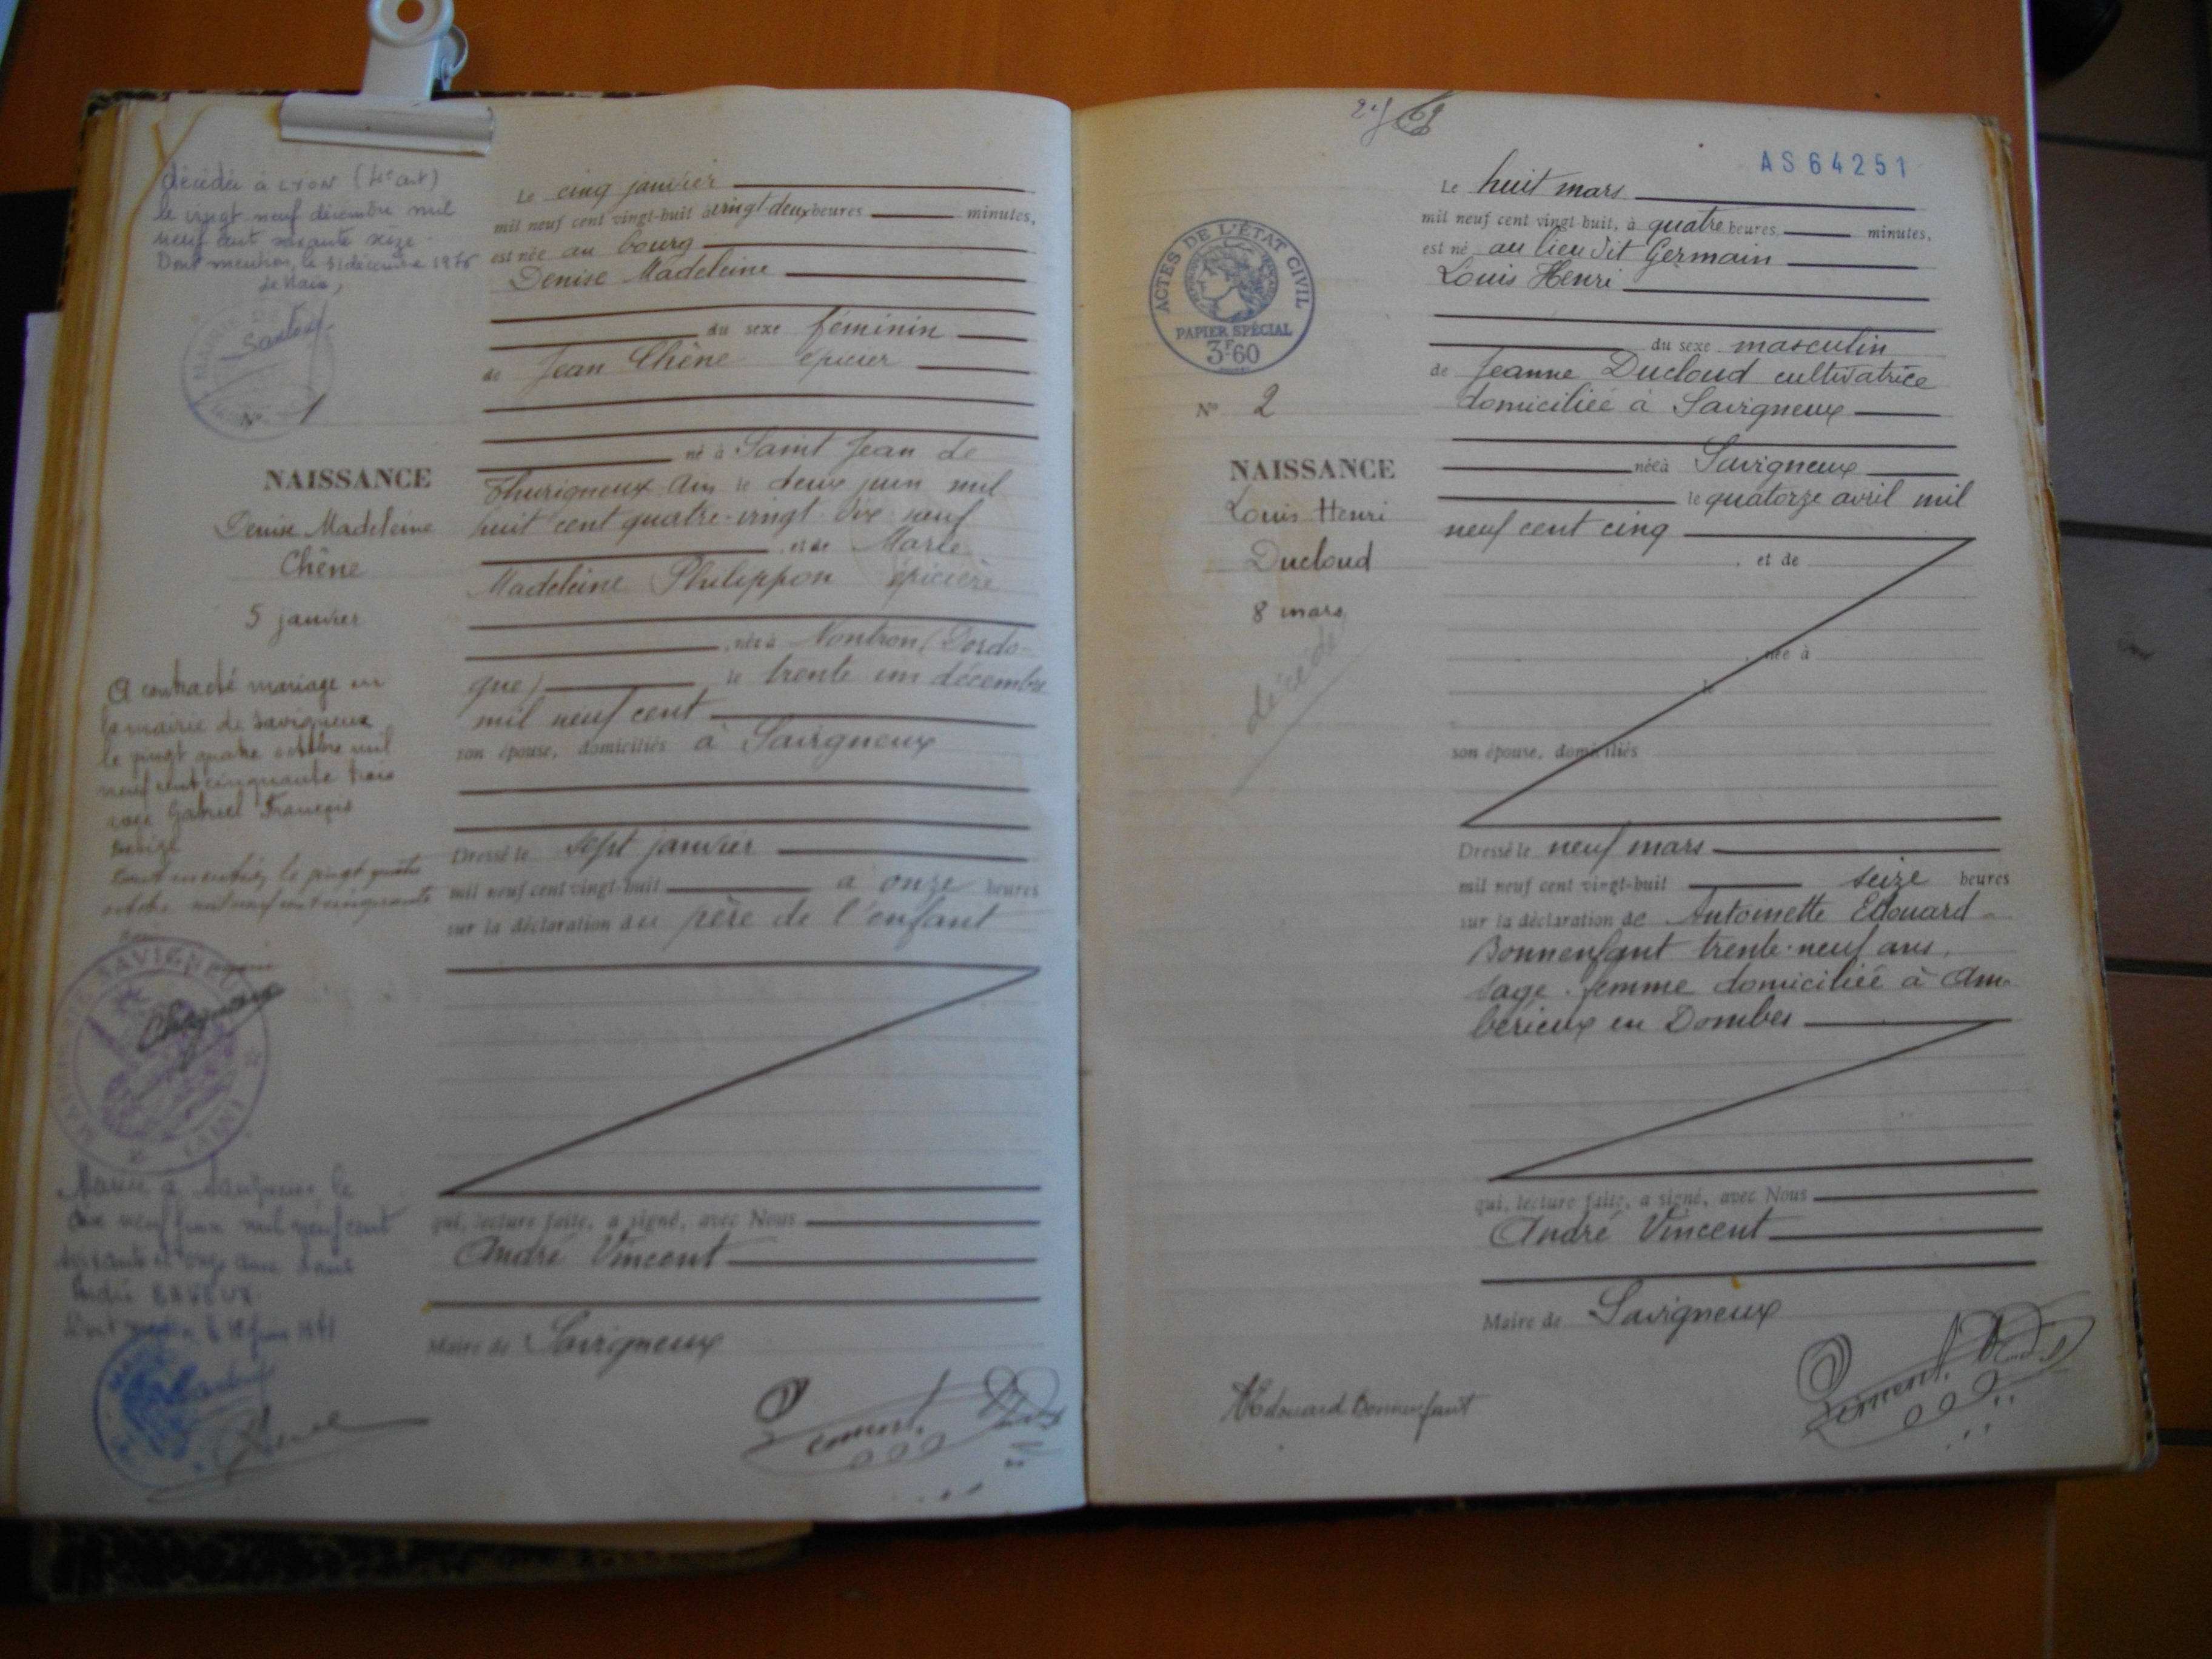 décédée à Lyon (4e art)
le vingt neuf décembre mil
neuf cent soixante seize
Dont mention, le 31 décembre 1976
Le Maire,
N° 1
NAISSANCE
Denise Madeleine
Chêne
5 janvier
A contracté mariage en
la mairie de Savigneux
le vingt quatre octobre mil
neuf cent cinquante trois
avec Gabriel François
Dont mention, le vingt quatre
octobre mil neuf cent cinquante
MAIRIE DE SAVIGNEUX
(AIN)
Mariée à Savigneux le
dix neuf juin mil neuf cent
soixante et onze avec
André
Le cinq janvier
mil neuf cent vingt-huit à vingt deux heures minutes,
est née au bourg
Denise Madeleine
du sexe féminin
de Jean Chêne épicier
né à Saint Jean de
Thurigneux Ain le deux juin mil
huit cent quatre-vingt dix neuf
et de Marie
Madeleine Philippon épicière
née à Nontron (Dordo-
gne) le trente un décembre
mil neuf cent
son épouse, domiciliés à Savigneux
Dressé le sept janvier
mil neuf cent vingt-huit à onze heures
sur la déclaration du père de l'enfant
qui, lecture faite, a signé, avec Nous
André Vincent
Maire de Savigneux
Chêne
Vincent
AS64251
ACTES DE L'ÉTAT CIVIL
PAPIER SPÉCIAL
3F60
N° 2
NAISSANCE
Louis Henri
Ducloud
8 mars
décédé
Le huit mars
mil neuf cent vingt-huit, à quatre heures minutes,
est né au lieu dit Germain
Louis Henri
du sexe masculin
de Jeanne Ducloud cultivatrice
domiciliée à Savigneux
née à Savigneux
le quatorze avril mil
neuf cent cinq
et de
née à
le
son épouse, domiciliés
Dressé le neuf mars
mil neuf cent vingt-huit seize heures
sur la déclaration de Antoinette Edouard
Bonnenfant trente-neuf ans,
sage-femme domiciliée à Am-
bérieux en Dombes
qui, lecture faite, a signé, avec Nous
André Vincent
Maire de Savigneux
AEdouard Bonnenfant
Vincent